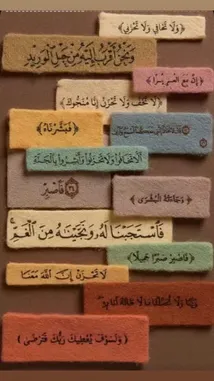 ﴿ وَلَا تَخَافِي وَلَا تَحْزَنِي ﴾
وَنَحْنُ أَقْرَبُ إِلَيْهِ مِنْ حَبْلِ الْوَرِيدِ
﴿ إِنَّ مَعَ الْعُسْرِ يُسْرًا ﴾
﴿ لَا تَخَفْ وَلَا تَحْزَنْ إِنَّا مُنَجُّوكَ ﴾
﴿ فَبَشَّرْنَاهُ ﴾
أَلَّا تَخَافُوا وَلَا تَحْزَنُوا وَأَبْشِرُوا بِالْجَنَّةِ
فَاصْبِرْ
﴿ وَجَاءَتْهُ الْبُشْرَى ﴾
فَاسْتَجَبْنَا لَهُ وَنَجَّيْنَاهُ مِنَ الْغَمِّ
﴿ فَاصْبِرْ صَبْرًا جَمِيلًا ﴾
لَا تَحْزَنْ إِنَّ اللَّهَ مَعَنَا
رَبَّنَا وَلَا تُحَمِّلْنَا مَا لَا طَاقَةَ لَنَا بِهِ
﴿ وَلَسَوْفَ يُعْطِيكَ رَبُّكَ فَتَرْضَى ﴾